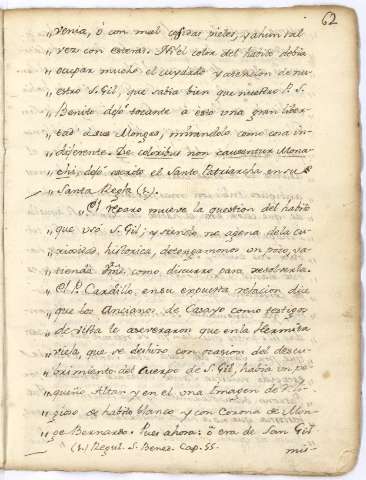 62
„ venia, ó con mal cosidas pieles, y ahun tal
„ vez con esteras. Ni el color del habito debia
„ ocupar mucho el cuydado y atencion de nu-
„ estro S. Gil, que sabia bien que nuestro P. S.
„ Benito dejó tocante a esto una gran liber-
„ tad a sus Monges, mirandolo como cosa in-
„ diferente. De coloribus non causentur Mona-
„ chi, dejó escrito el Santo Patriarcha en su
„ Santa Regla (1).
„ El reparo mueve la question del habito
„ que usó S. Gil, y siendo no agena de la cu-
„ riosidad historica, detengamonos un poco, va-
„ liendo como discurro para resolverla.
„ El P. Cardillo, en su expuesta relacion dice
„ que los Ancianos de Casayo como testigos
„ de vista le aseveraron que en la Hermita
„ vieja, que se deshizo con ocasion del descu-
„ brimiento del Cuerpo de S. Gil, habia un pe-
„ queño Altar, y en el una Imagen de Reli-
„ gioso de habito blanco, y con Corona de Mon-
„ ge Bernardo. Pues ahora: ó era de San Gil
(1) Regul. S. Bened. Cap. 55.
mis-